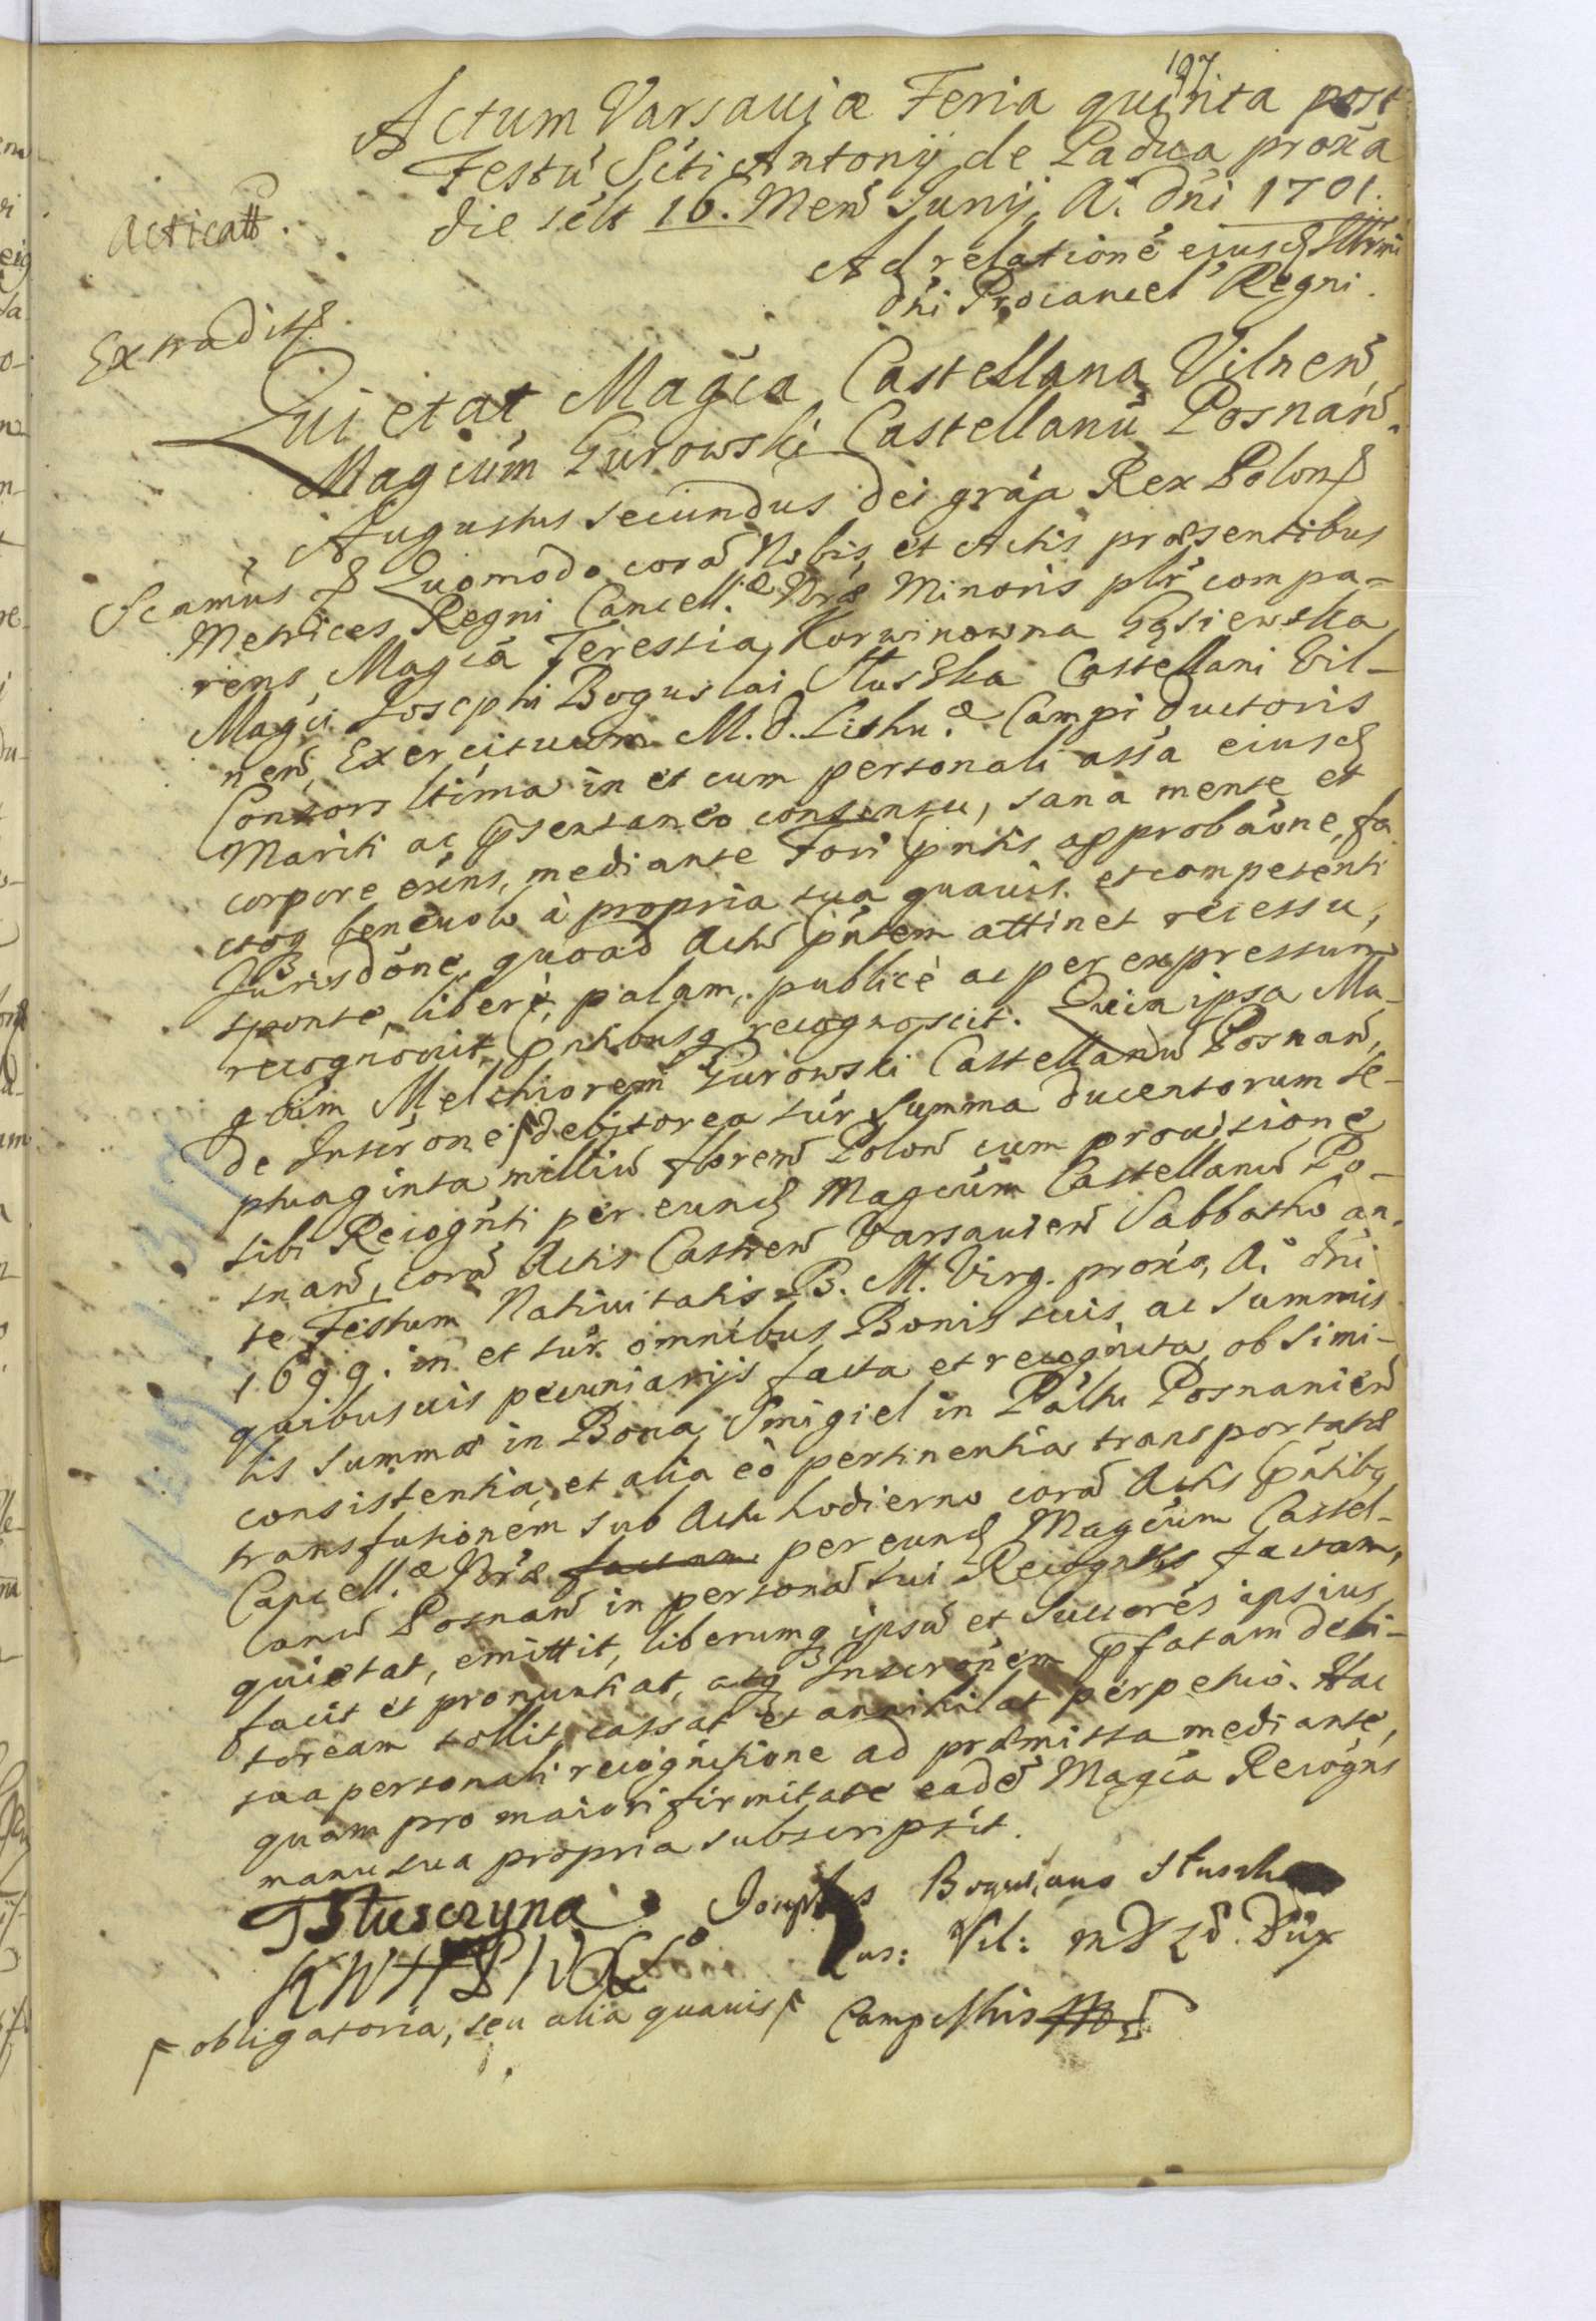 197
Actum Varsauiæ Feria quinta post
Festū Scti Antonij de Padua proxa
die sclt 16. Men Junij A. Dni 1701.
Acticatt.
Ad relatione eiusd Illrmi
dni Procancel Regni.
Extradit
Quietat Magca Castellana Vilnen
Magcum Gurowski Castellanū Posnan.
Augustus secundus Dei gra̅a Rex Polon
Scamus Quomodo corā Nobis, et Actis præsentibus
Metrices Regni Cancell.æ Nræ Minoris plr compa-
rens Magca Teressia Korwinowna Gąsiewska
Magci Josephi Boguslai Sluszka Castellani Vil-
nen, Exercituum M. D. Lithu.æ Campi Ductoris
Consors ltima in et cum personali assa eiusd
Mariti ac pſentaneo consensu, sana mente et
corpore exns, mediante Fori pntis approbaone, fa
ctoq beneuolo à propria sua quauis et competenti
Jurisdone, quoad Actū pntem attinet recessu,
sponte, liberè, palam, publicè ac per expressum
recognouit, pntibusq recognoscit. Quia ipsa Ma-
gcum Melchiorem Gurowski Castellanū Posnan,
de Inscrone debitorea sur Summa ducentorum se-
ptuaginta milliū floren Polon cum prouisione
sibi Recognti per eund Magcum Castellanū Po-
snan, corā Actis Castren Varsauien Sabbatho an-
te Festum Natiuitatis B. M. Virg. proxo, A. Dni
1699. in et sur omnibus Bonis suis, ac Summis
quibusuis pecuniarijs facta et recognita, ob simi-
lis Summæ in Bona Smigiel in Paltu Posnanien
consistentia, et alia eò pertinentia transportatæ
transfusionem sub Actu hodierno corā Actis pntibq
Cancell.æ Nræ factam per eund Magcum Castel-
lanū Posnan in personā sui Recogntis factam,
quietat, emittit, liberumq ipsū et Succores ipsius
facit et pronuntiat, atq Inscronem pfatam debi-
toream tollit, cassat et annihilat perpetuò. Hac
sua personali recognitione ad præmissa mediante,
quam pro maiori firmitate eadē Magca Recogns
manu sua propria subscripsit.
TSłuscżyna Josephus Boguslaus Slusch
KWHPWXL Cas: Vil: MDLd. Dux
⌈obligatoria, seu alia quauis⌈ Campestris